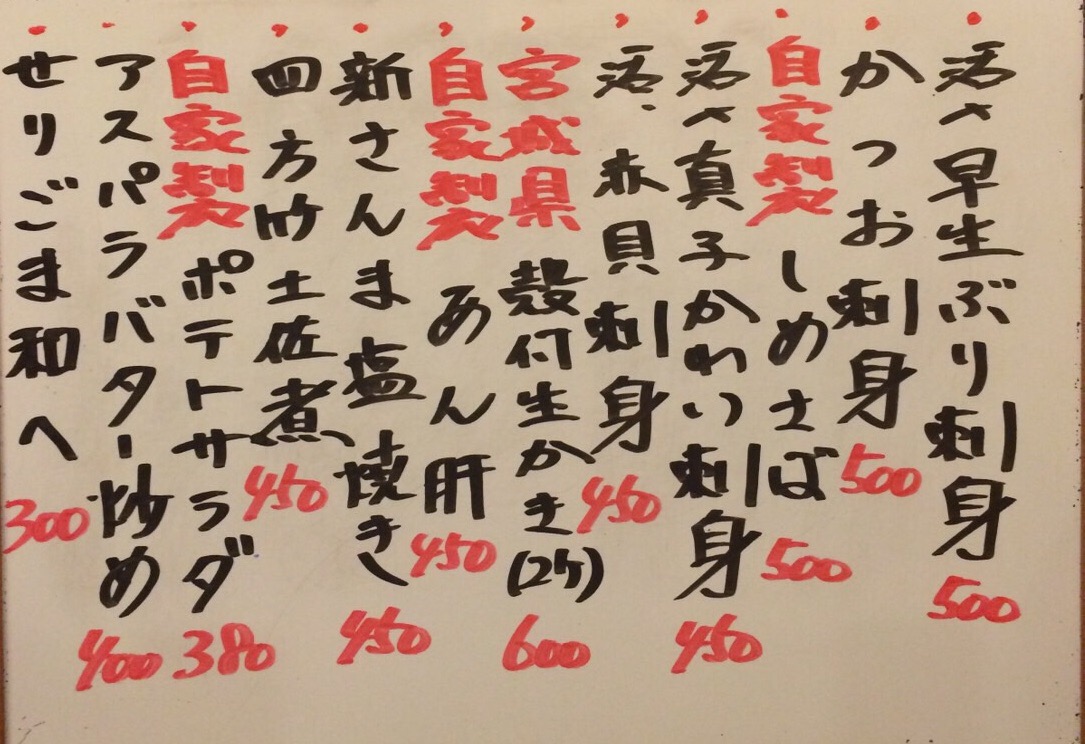 ・活〆早生ぶり刺身 500
・かつお刺身 500
・自家製 しめさば 500
・活〆真子かれい刺身 450
・活、赤貝刺身 450
・宮城県 殻付生かき(2ケ) 600
・自家製 あん肝 450
・新さんま塩焼き 450
・四方竹土佐煮 450
・自家製 ポテトサラダ 380
・アスパラバター炒め 400
・せりごま和へ 300